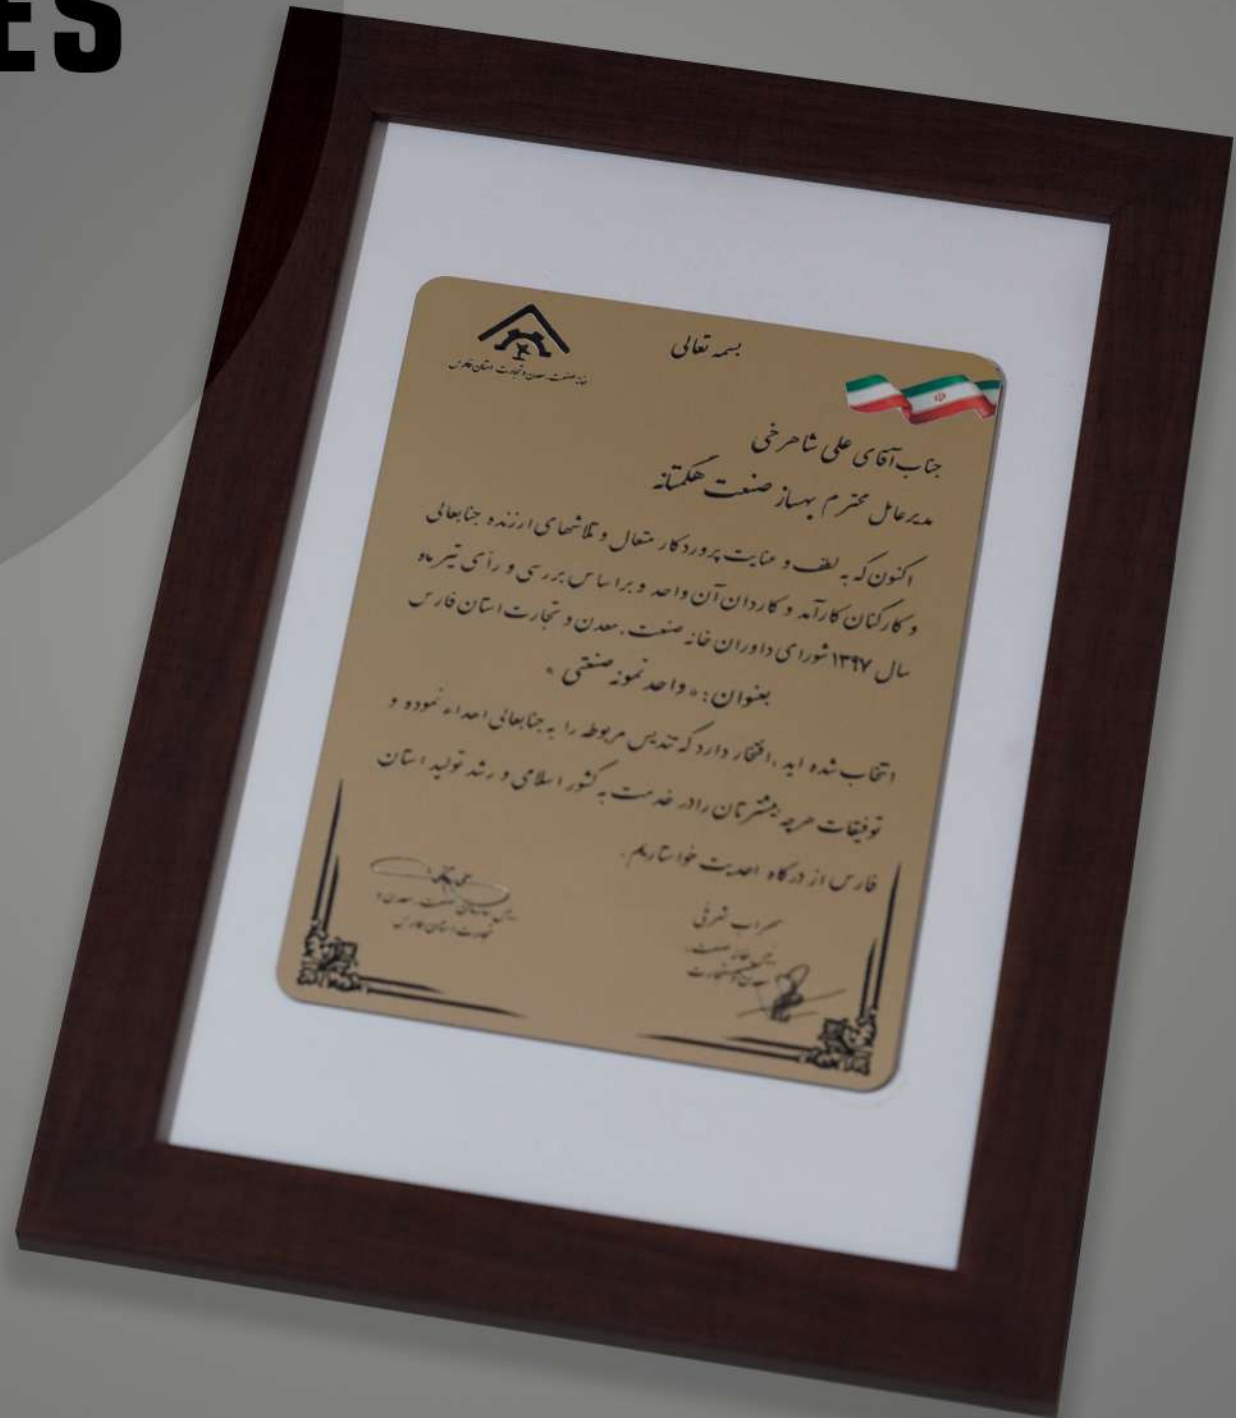 ES
بسمه تعالی
خانه صنعت، معدن و تجارت استان فارس
جناب آقای علی شاهرخی
مدیرعامل محترم بهساز صنعت هگمتانه
اکنون که به لطف و عنایت پروردگار متعال و تلاشهای ارزنده جنابعالی
و کارکنان کارآمد و کاردان آن واحد و براساس بررسی و رأی تیر ماه
سال ۱۳۹۷ شورای داوران خانه صنعت، معدن و تجارت استان فارس
بعنوان: «واحد نمونه صنعتی»
انتخاب شده اید، افتخار دارد که تندیس مربوطه را به جنابعالی اهداء نموده و
توفیقات هرچه بیشترتان را در خدمت به کشور اسلامی و رشد تولید استان
فارس از درگاه احدیت خواستاریم.
سهراب شرفی
رئیس خانه صنعت،
معدن و تجارت
رئیس سازمان صنعت، معدن و
تجارت استان فارس